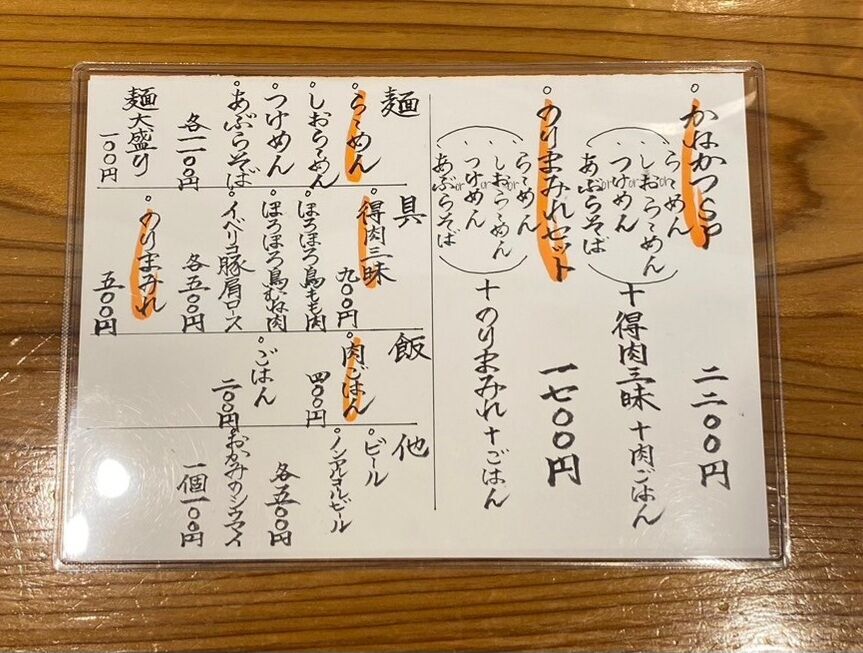 かねかつSP
らーめん
or
しおらーめん
or
つけめん
or
あぶらそば
+得肉三昧+肉ごはん
二二〇〇円
のりまみれセット
らーめん
or
しおらーめん
or
つけめん
or
あぶらそば
+のりまみれ+ごはん
一七〇〇円
麺
らーめん
しおらーめん
つけめん
あぶらそば
各一一〇〇円
麺大盛り
一〇〇円
具
得肉三昧
九〇〇円
ほろほろ鳥もも肉
ほろほろ鳥むね肉
イベリコ豚肩ロース
各五〇〇円
のりまみれ
五〇〇円
飯
肉ごはん
四〇〇円
ごはん
二〇〇円
他
ビール
ノンアルコールビール
各五〇〇円
おかみのシウマイ
一個一〇〇円